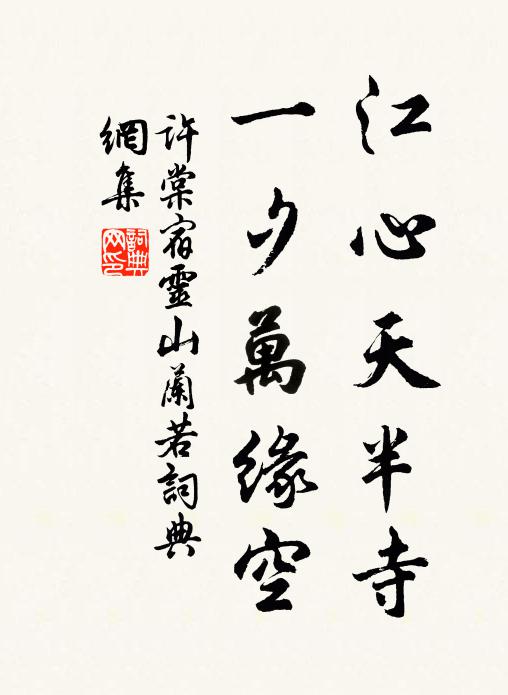 江心天半寺
一夕萬緣空
許棠宿靈山蘭若詞典
網集
詞典
网印